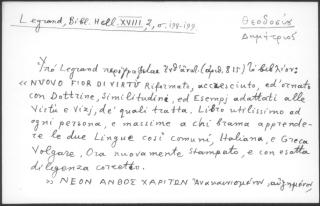 Legrand, Bibl. Hell. XVIII 2, σ. 198-199
Θεοδοσίου
Δημήτριος
Ὑπὸ Legrand περιγράφεται ἐνθ' ἀνωτ. (ἀριθ. 815) τὸ βιβλίον:
« NUOVO FIOR DI VIRTU Riformato, accresciuto, ed ornato
con Dottrine, Similitudini, ed Esempj adattati alle
Virtù e Vizj, de' quali tratta. Libro utilissimo ad
ogni persona, e massime a chi brama apprende-
re le due Lingue così comuni, Italiana, e Greca
Volgare, Ora nuovamente stampato, e con esatta
diligenza corretto.
» ΝΕΟΝ ΑΝΘΟΣ ΧΑΡΙΤΩΝ Ἀνακαινισμένον, αὐξημένον